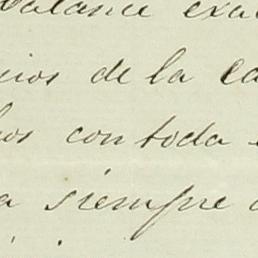 balance exa
cios de la ca
los con toda
a siempre